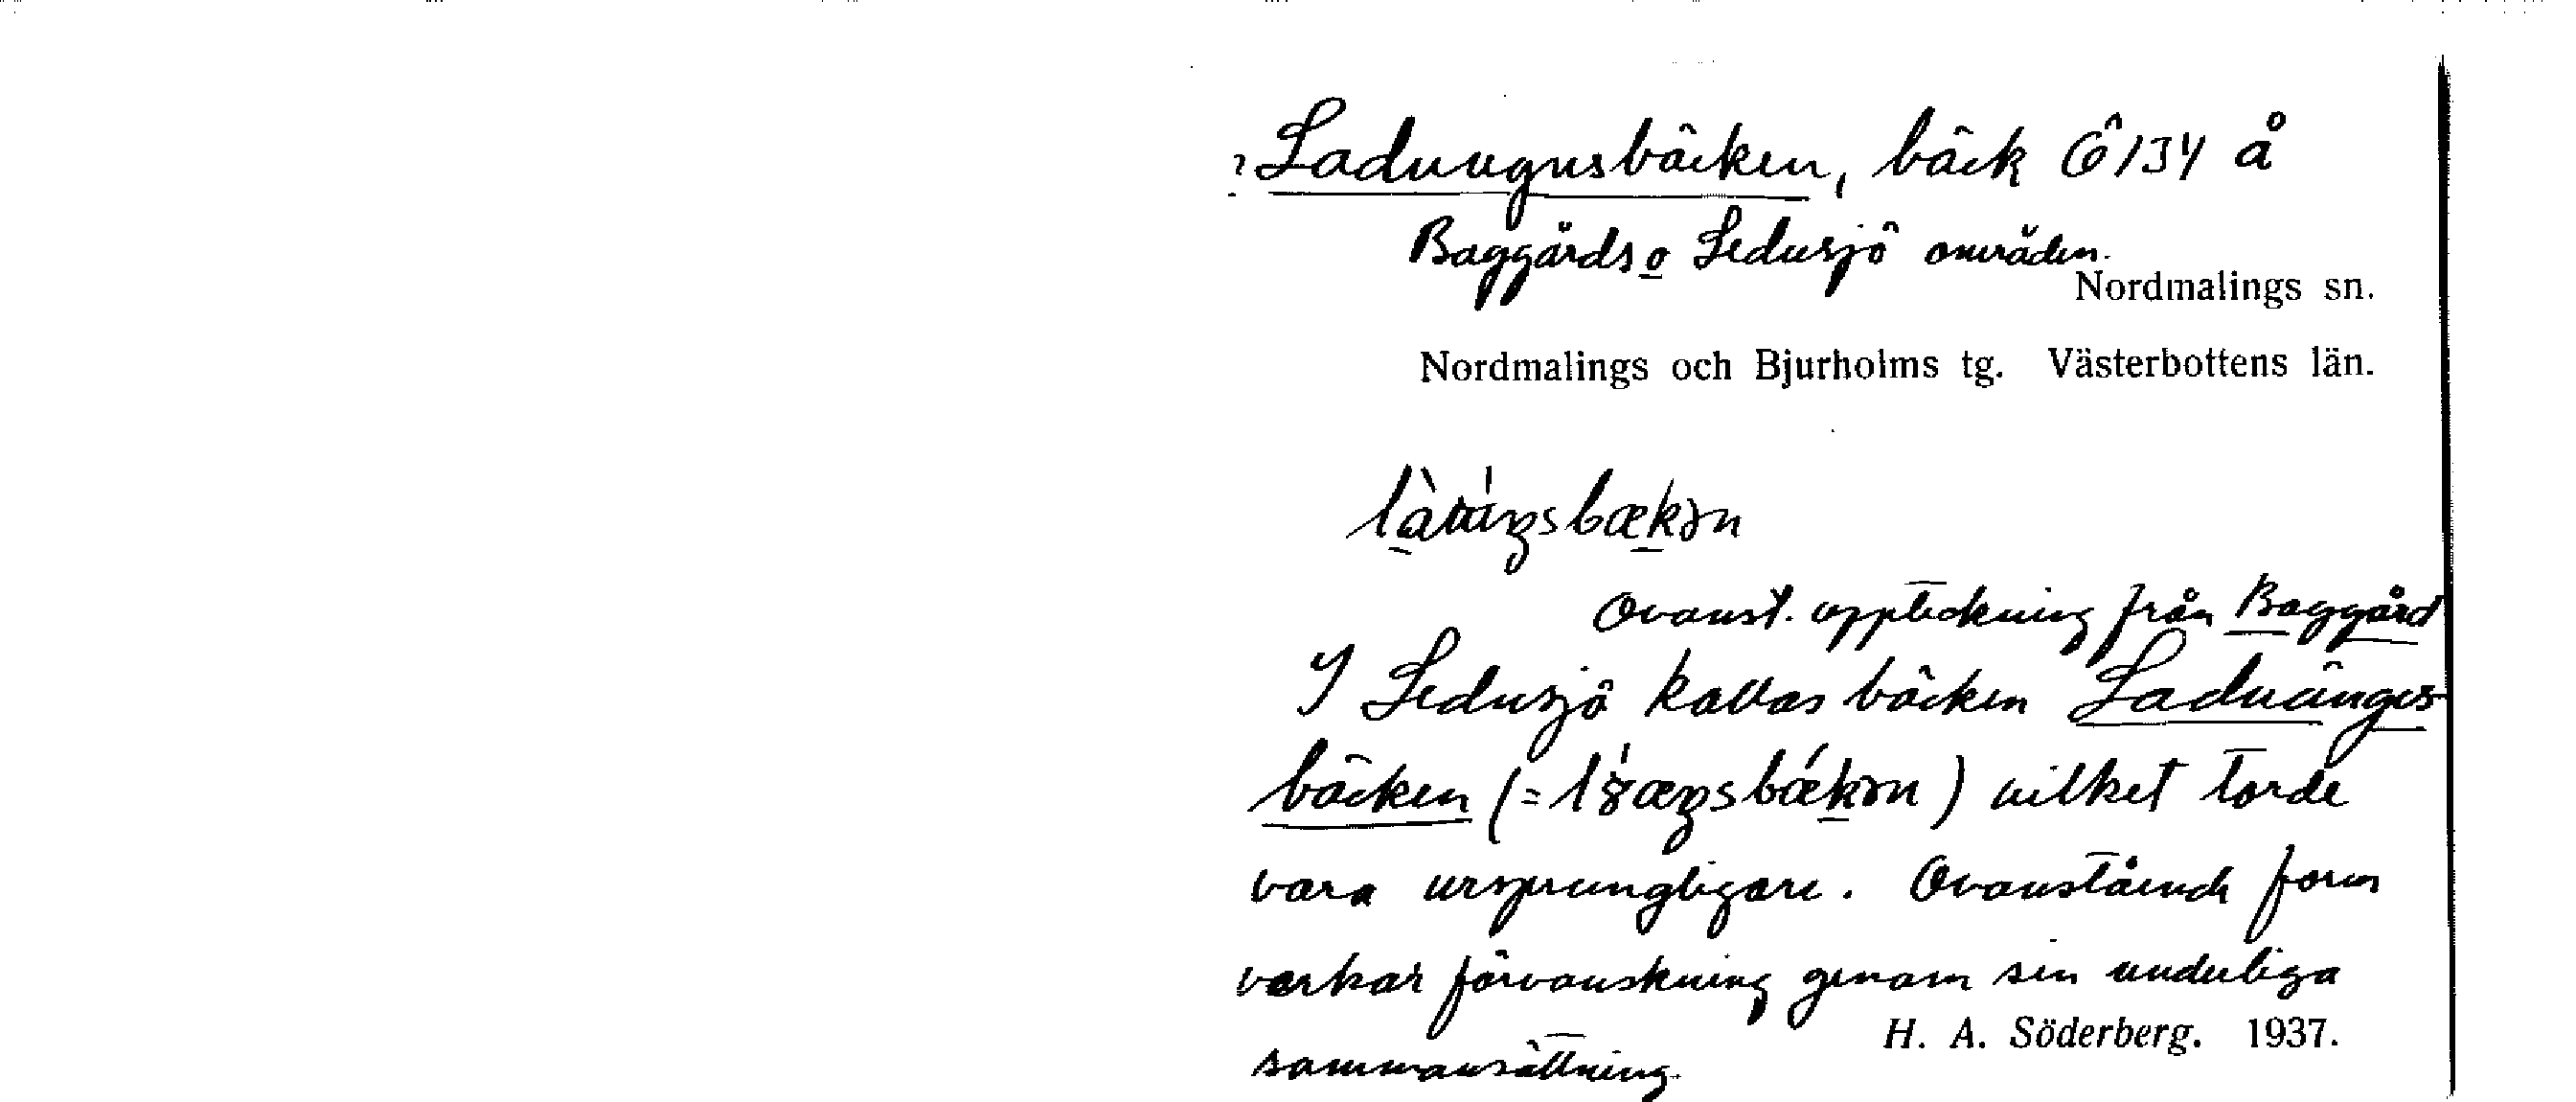 ? Ladungnsbäcken, bäck Ö 134 å
Baggårds o Ledusjö områden.
Nordmalings sn.
Nordmalings och Bjurholms tg. Västerbottens län.
Ovanst. uppteckning från Baggård
I Ledusjö kallas bäcken Laduängs
bäcken vilket torde
vara ursprungligare. Ovanstående form
verkar förvanskning genom sin underliga
H. A. Söderberg. 1937.
sammansättning.